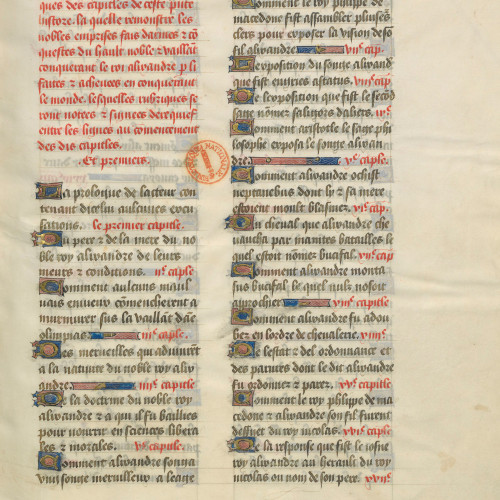 ques des capitles de ceste pnte
histore. la quele remonstre les
nobles emprises fais darmes & co
questes du hault noble & vaillat
conquerant le roy alixandre p li
faites & achevees en conquerant
le monde. lesquelles rubriques se
ront notees & signees derecquief
entre les lignes au comencement
des dis capitles.
Et premiers.
La prologue de lacteur con
tenant dicelui aulcunes excu
sations. le premier capitle.
Du pere & de la mere du no
ble roy alixandre de leurs
meurs & conditions. iie caple
Comment aulcuns maul
uais enuieux comencherent a
murmurer sus la vaillat dame
olimpias. iiie caple.
Des merveilles qui aduinrent
a la natiuite du noble roy alix
andre. iiiie capitle
De la doctrine du noble roy
alixandre & a qui il fu bailliet
pour nourrir en sciences libera
les & morales. ve capitle.
Comment alixandre songa
vng songe merveilleux a leage
Comment le roy phelippe de
macedone fist assambler pluiseurs
clers pour exposer la vision de so
fil alixandre vie cap.
De lexposition du songe alixand
que fist entiries astatus. viie cap.
De lexposition que fist le secod
sage nomez saligors daliers. viiie cap.
Comment aristotle le sage phi
losophe exposa le songe alixan
dre. ixe caple.
Comment alixandre ochist
neptanebus dont ly & sa mere
estoient moult blasmez. xe cap.
Du cheual que alixandre che
uaucha par maintes batailles le
quel estoit nomez bucifal. xie cap
Comment alixandre monta
sus bucifal, le quel nulz nosoit
aprochier. xiie caple
Comment alixandre fu adou
bez en lordre de cheualerie. xiiie.
De lestat & del ordonnance et
des parures dont le dit alixandre
fu ordonnez & parez.
Comment le roy phlippe de ma
cedone & alixandre son fil furent
deffiez du roy nicolas
De la response que fist le josne
roy alixandre au herault du roy
nicolas ou nom de son pere.